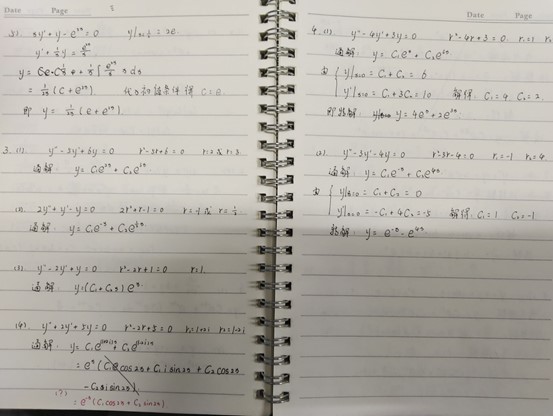 Date Page
3) xy' + y - eˣ = 0 y|ₓ₌½ = 2e
y' + 1/x y = eˣ/x
= 1/x (C + eˣ) 代入初值条件得 C = e
即 y = 1/x (e + eˣ)
3. (1). y'' - 5y' + 6y = 0 r² - 5r + 6 = 0 r = 2 或 r = 3
通解: y = C₁e²ˣ + C₂e³ˣ
(2). 2y'' + y' - y = 0 2r² + r - 1 = 0 r = -1 或 r = 1/2
通解: y = C₁e⁻ˣ + C₂e^(½x)
(3) y'' - 2y' + y = 0 r² - 2r + 1 = 0 r = 1
通解: y = (C₁ + C₂x) eˣ
(4). y'' + 2y' + 5y = 0 r² - 2r + 5 = 0
通解:
= eˣ (C₁cos2x + C₁ i sin2x + C₂ cos2x
- C₂ i sin2x)
(?) = eˣ (C₁ cos2x + C₂ sin2x)
Date Page
4. (1). y'' - 4y' + 3y = 0 r² - 4r + 3 = 0. r₁ = 1
通解: y = C₁eˣ + C₂e³ˣ
由 { y|ₓ₌₀ = C₁ + C₂ = 6
y'|ₓ₌₀ = C₁ + 3C₂ = 10 解得: C₁ = 4, C₂ = 2
即特解: y = 4eˣ + 2e³ˣ
(2). y'' - 3y' - 4y = 0 r² - 3r - 4 = 0. r₁ = -1 r₂ = 4
通解: y = C₁e⁻ˣ + C₂e⁴ˣ
由 { y|ₓ₌₀ = C₁ + C₂ = 0
y'|ₓ₌₀ = -C₁ + 4C₂ = -5 解得: C₁ = 1 C₂ = -1
特解: y = e⁻ˣ - e⁴ˣ